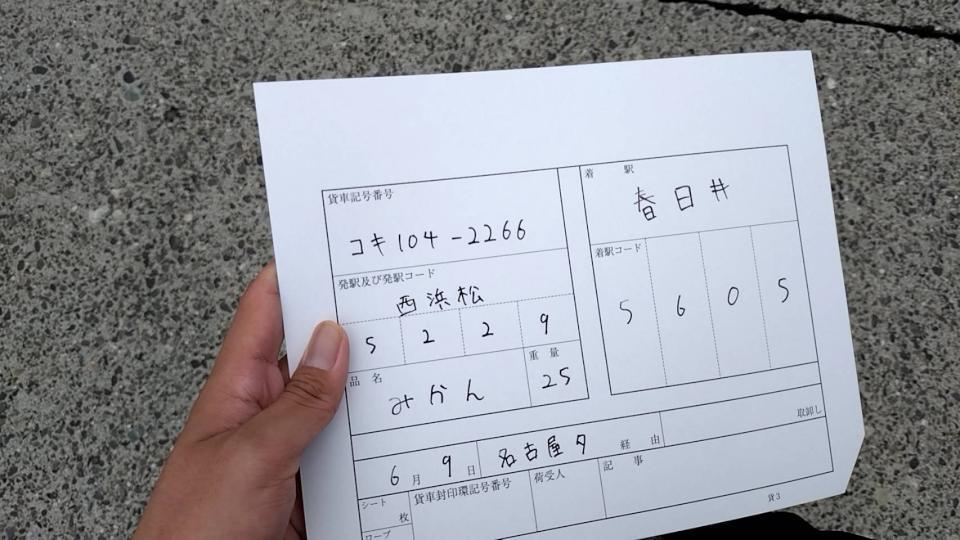 貨車記号番号
コキ104-2266
発駅及び発駅コード
西浜松
5 2 2 9
品名
みかん
重量
25
着駅
春日井
着駅コード
5 6 0 5
6月9日
名古屋タ 経由
取卸し
シート
枚
貨車封印環記号番号
荷受人
記事
ロープ
貨3